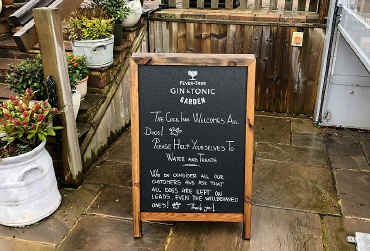 FEVER-TREE
GIN & TONIC
GARDEN
THE COCK INN WELCOMES ALL
DOGS!
PLEASE HELP YOURSELVES TO
WATER AND TREATS
WE DO CONSIDER ALL OUR
CUSTOMERS AND ASK THAT
ALL DOGS ARE KEPT ON
LEADS, EVEN THE WELLBEHAVED
ONES! Thank you!